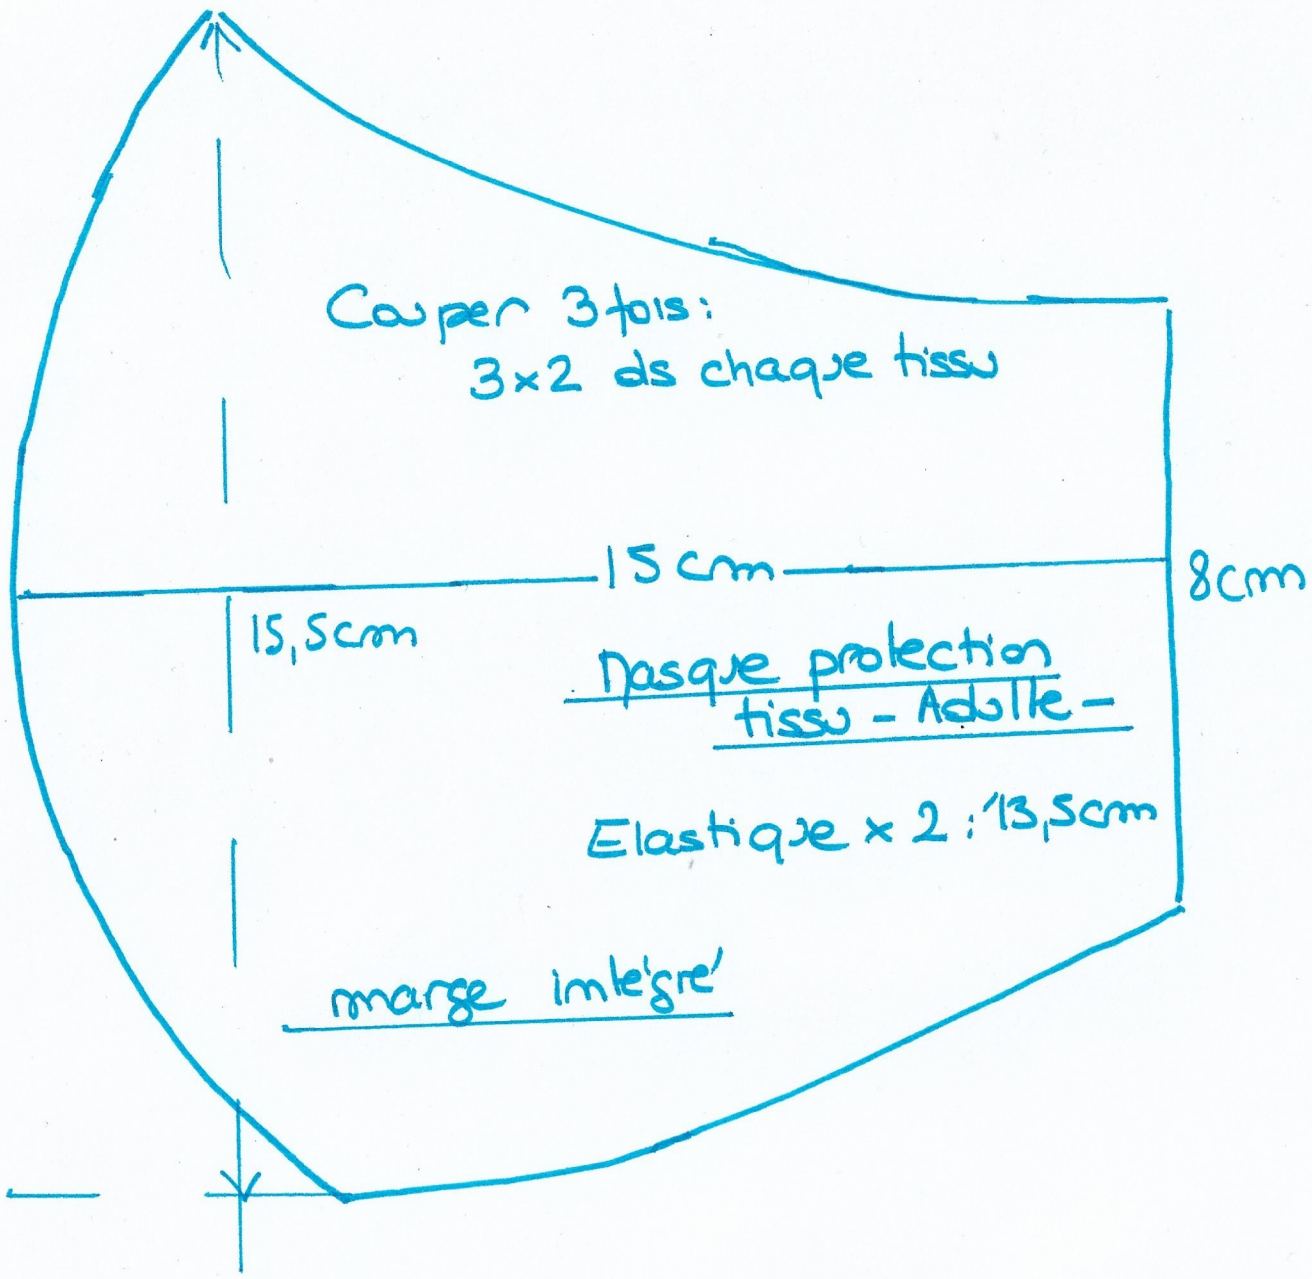 Couper 3 fois:
3x2 ds chaque tissu
15cm
8cm
15,5cm
Masque protection
tissu - Adulte -
Elastique x 2 : 13,5cm
marge intégré